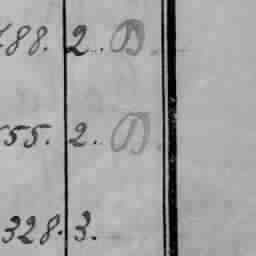 88. 2. D.
55. 2. D.
328. 3.